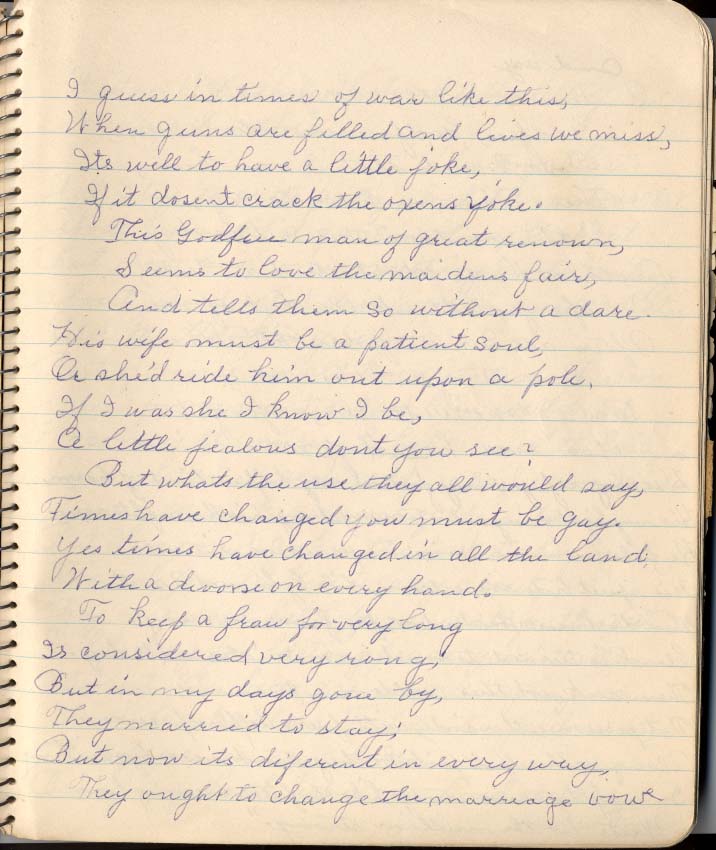 I guess in times of war like this,
When guns are filled and lives we miss,
Its well to have a little joke,
If it dosent crack the oxens yoke.
This Godfree man of great renown,
Seems to love the maidens fair,
And tells them so without a dare.
His wife must be a patient soul,
Or she'd ride him out upon a pole.
If I was she I know I be,
A little jealous dont you see?
But whats the use they all would say,
Times have changed you must be gay.
Yes times have changed in all the land;
With a divorse on every hand.
To keep a frau for very long
Is considered very rong;
But in my days gone by,
They married to stay;
But now its diferent in every way,
They ought to change the marriage vowe